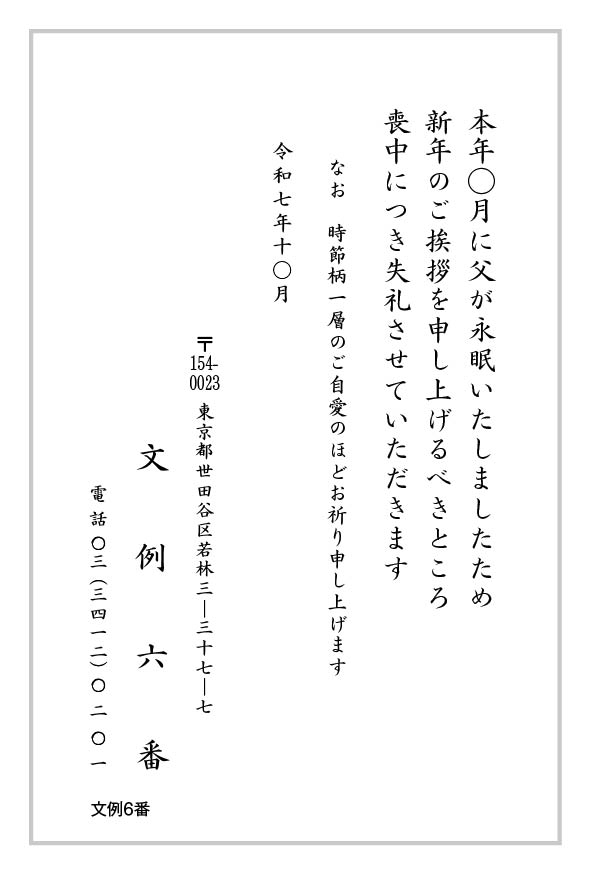 本年〇月に父が永眠いたしましたため
新年のご挨拶を申し上げるべきところ
喪中につき失礼させていただきます
なお　時節柄一層のご自愛のほどお祈り申し上げます
令和七年十〇月
〒154-0023 東京都世田谷区若林三―三十七―七
文例六番
電話〇三(三四一二)〇二〇一
文例6番